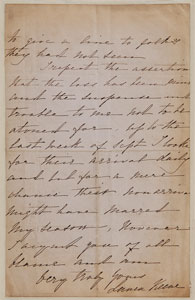 To give a line to folks
they had not seen
I repeat the assertion
that the loss has been mine
and the suspense and
trouble to me not to be
atoned for. Up to the
last week of Sept I looked
for their arrival daily
and but for a mere
chance their nonarrival
might have marred
my season, However
I acquit you of all
blame and am
Very truly yours
Laura Keene